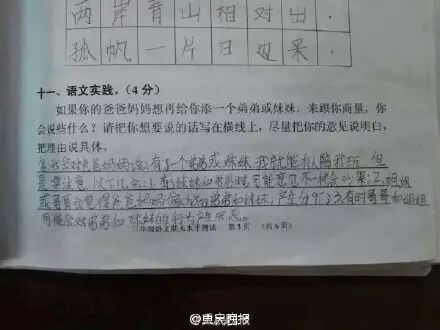 两岸青山相对出.
孤帆一片日边来.
十一、语文实践。(4分)
如果你的爸爸妈妈想再给你添一个弟弟或妹妹，来跟你商量，你
会说些什么？请把你想要说的话写在横线上，尽量把你的意见说明白，
把理由说具体。
我会对爸爸妈妈说：有了一个弟弟或妹妹，我就能有人陪我玩，但
是要注意以下几点：1.有妹妹和弟弟时可能意见不
或哥哥会觉得爸爸妈妈偏心弟弟和妹妹，产生分歧。3.有时哥哥和姐姐
可能会对弟弟和妹妹的行为产生反感。
三年级语文期末水平测试 第5页 (共6页)
@重庆晚报